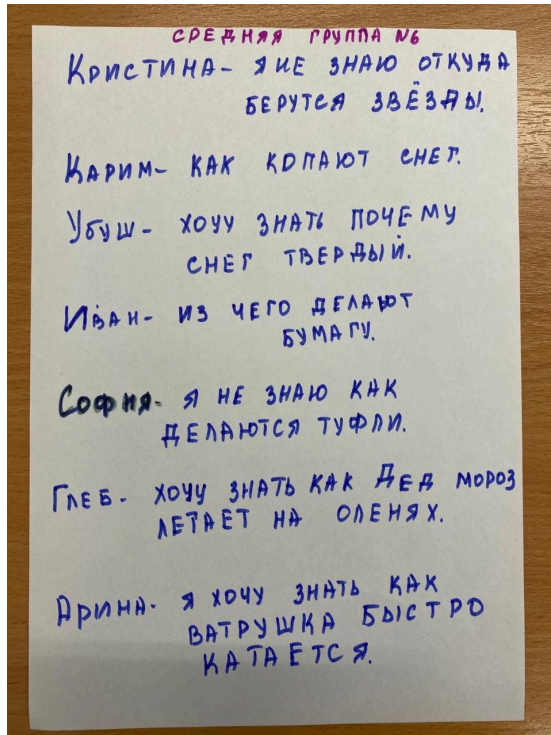 СРЕДНЯЯ ГРУППА №6
КРИСТИНА- Я НЕ ЗНАЮ ОТКУДА
БЕРУТСЯ ЗВЁЗДЫ.
КАРИМ- КАК КОПАЮТ СНЕГ.
УБУШ- ХОЧУ ЗНАТЬ ПОЧЕМУ
СНЕГ ТВЕРДЫЙ.
ИВАН- ИЗ ЧЕГО ДЕЛАЮТ
БУМАГУ.
СОФИЯ- Я НЕ ЗНАЮ КАК
ДЕЛАЮТСЯ ТУФЛИ.
ГЛЕБ- ХОЧУ ЗНАТЬ КАК ДЕД МОРОЗ
ЛЕТАЕТ НА ОЛЕНЯХ.
АРИНА- Я ХОЧУ ЗНАТЬ КАК
ВАТРУШКА БЫСТРО
КАТАЕТСЯ.